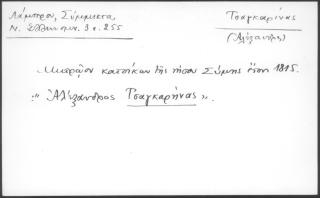 Λάμπρου, Σύμμικτα,
Ν. Ἑλληνομν. 3 σ. 255
Τσαγκαρίνας
(Ἀλέξανδρος)
κατοίκων τῆς νήσου Σύμης ἔτους 1815.
"Ἀλέξανδρος Τσαγκαρήνας".